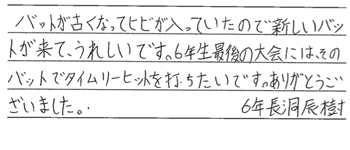 バットが古くなってヒビが入っていたので新しいバッ
トが来て、うれしいです。6年生最後の大会には、その
バットでタイムリーヒットを打ちたいです。ありがとうご
ざいました。 6年長洞辰樹